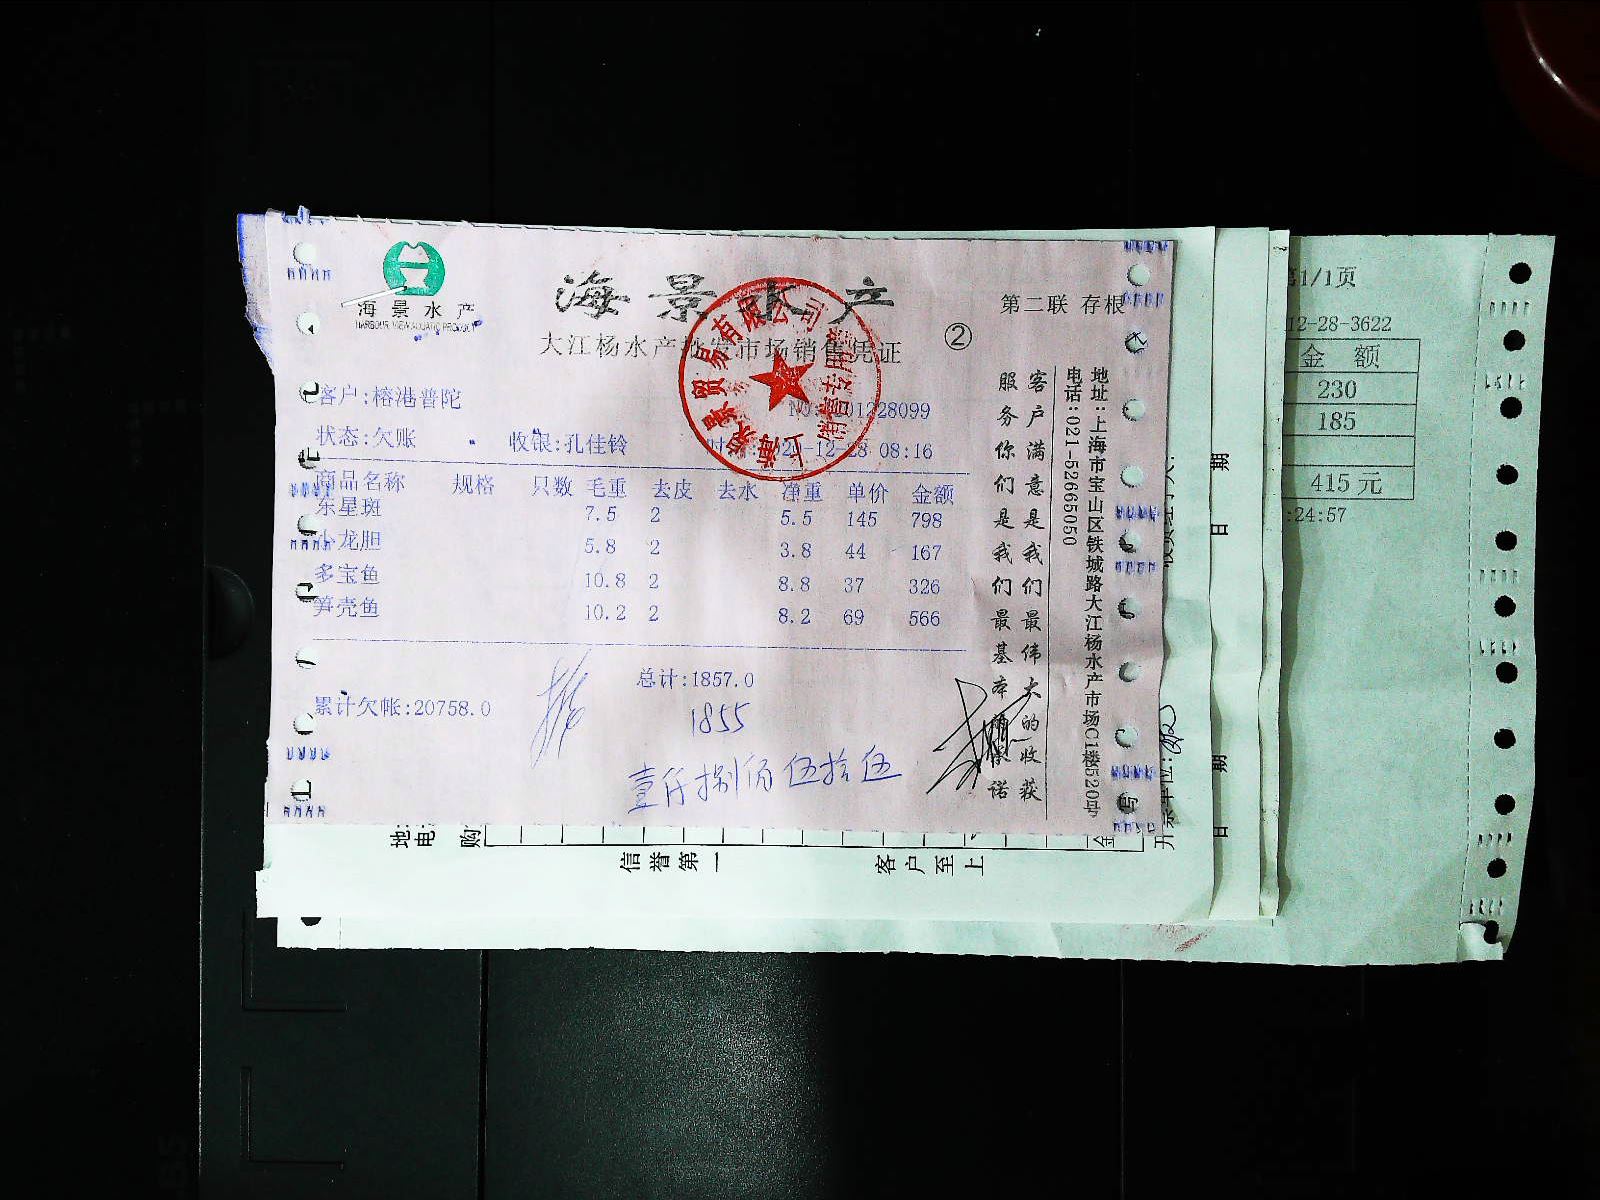 海景水产
HARBOUR VIEW AQUATIC PRODUCT
海景水产
第二联 存根
大江杨水产批发市场销售凭证
②
客户:榕港普陀
01228099
状态:欠账 收银:孔佳铃 12-28 08:16
商品名称 规格 只数 毛重 去皮 去水 净重 单价 金额
东星斑 7.5 2 5.5 145 798
小龙胆 5.8 2 3.8 44 167
多宝鱼 10.8 2 8.8 37 326
笋壳鱼 10.2 2 8.2 69 566
总计:1857.0
累计欠帐:20758.0
1855
壹仟捌佰伍拾伍
客户满意是我们最伟大的收获
服务你们是我们最基本的承诺
地址:上海市宝山区铁城路大江杨水产市场C1楼520号
电话:021-52665050
贸易有限公司
销售专用章
上海
第1/1页
12-28-3622
金额
230
185
415元
:24:57
期
日
期
日
地:
电:
购
金
信誉第一
客户至上